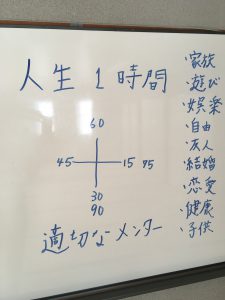 人生1時間
60
45 15 75
30
90
適切なメンター
・家族
・遊び
・娯楽
・自由
・友人
・結婚
・恋愛
・健康
・子供